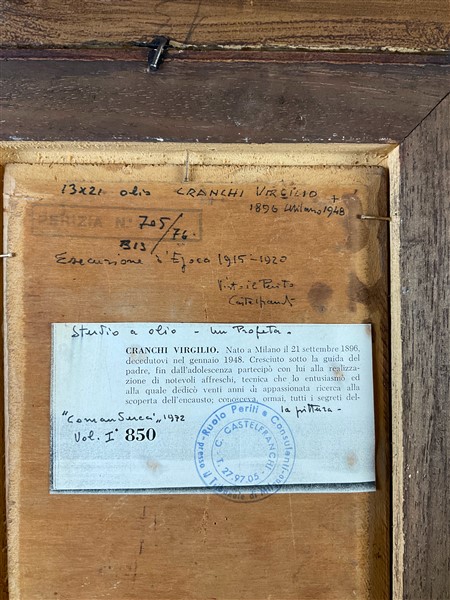 705/76
B13
13x21 olio CRANCHI VIRGILIO
+
1896 Milano 1948
PERIZIA N. 705/76.
B13
Esecuzione d'Epoca 1915-1920
Visto il Perito
Castelfranchi
Studio a olio - un Profeta.
CRANCHI VIRGILIO. Nato a Milano il 21 settembre 1896,
decedutovi nel gennaio 1948. Cresciuto sotto la guida del
padre, fin dall'adolescenza partecipò con lui alla realizza-
zione di notevoli affreschi, tecnica che lo entusiasmò ed
alla quale dedicò venti anni di appassionata ricerca alla
scoperta dell'encausto; conosceva, ormai, tutti i segreti del-
la pittura -
"Comanducci" 1972
Vol. I° 850
Ruolo Periti e Consulenti
C. CASTELFRANCHI
T. 27.97.05
presso il